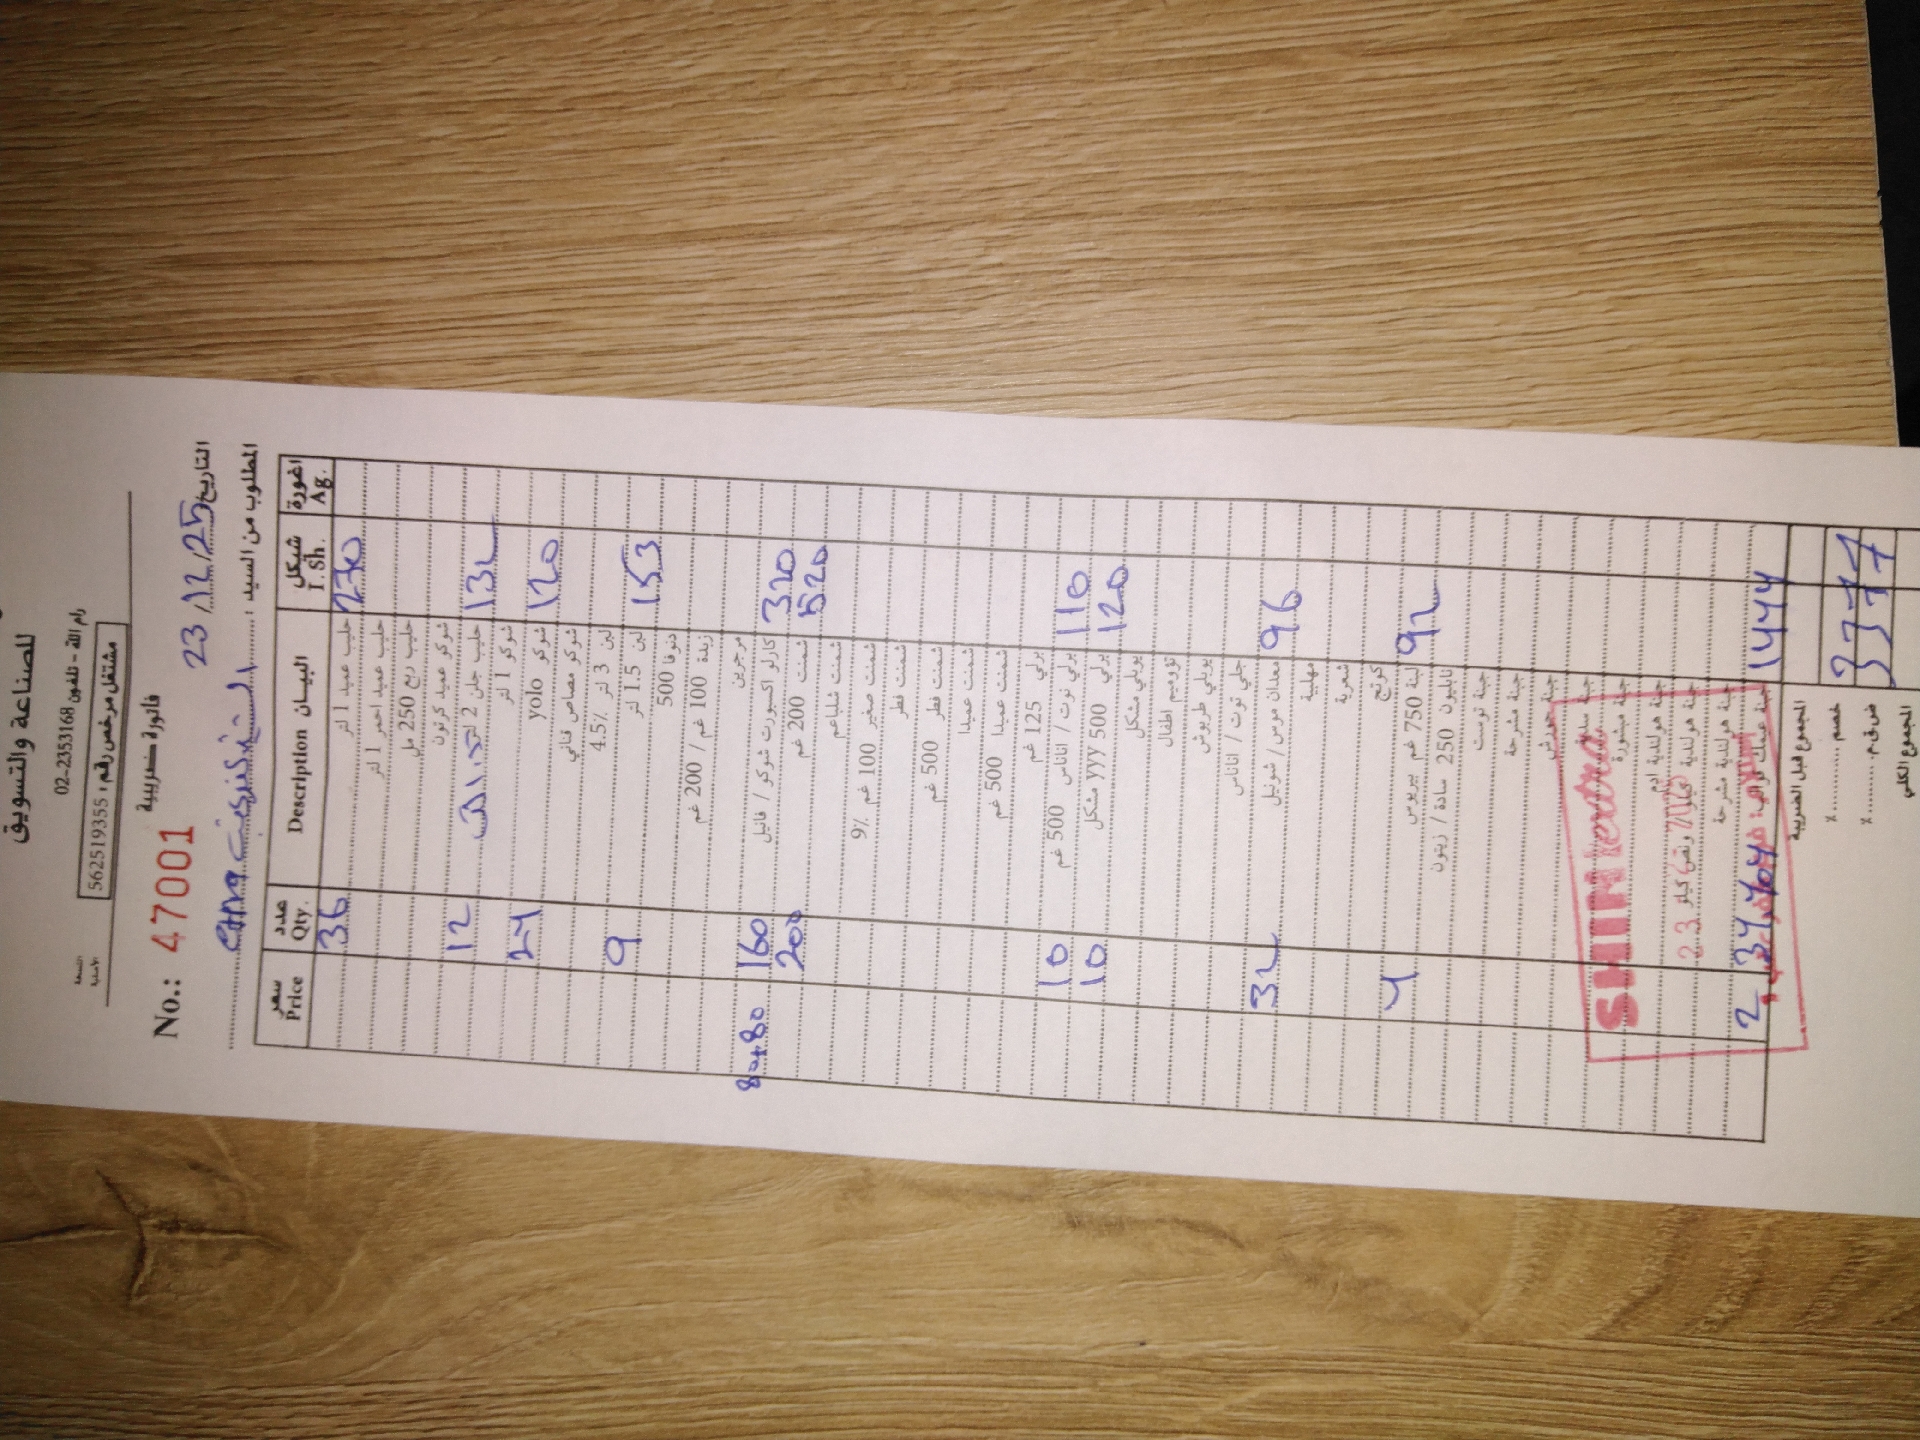 للصناعة والتسويق
رام الله - تلفون 02-2353168
مشتغل مرخص رقم: 562519355
فاتورة ضريبية
No.: 47001
التاريخ 23/12/25
المطلوب من السيد:
سعر Price عدد Qty. البيـــان Description شيكل I. Sh. اغورة Ag.
36 حليب عميد 1 لتر 270
حليب عميد احمر 1 لتر
حليب ربع 250 مل
شوكو عميد كرتون
12 حليب جلن 2 لتر 132
شوكو 1 لتر
24 شوكو yolo 120
شوكو مصاص قناني
لبن 3 لتر 4.5%
9 لبن 1.5 لتر 153
دنوفا 500
زبدة 100 غم / 200 غم
مرجرين
80+80 160 كارلو اكسبورت شوكو / فانيل 320
200 شمنت 200 غم 520
شمنت شلباعم
شمنت صغير 100 غم 9%
شمنت فطر
شمنت فطر 500 غم
شمنت عميدا
شمنت عميدا 500 غم
برلي 125 غم
10 برلي توت / اناناس 500 غم 110
10 برلي 500 yyy مشكل 120
يوبلي مشكل
تووميم اطفال
يوبلي طربوش
جلي توت / اناناس
32 معدان موس / شونيل 96
مهلبية
شعورية
كوتج
4 لبنة 750 غم بيريوس 92
نابليون 250 سادة / زيتون
جبنة توست
جبنة مشرحة
جبنة مبشورة
جبنة هولندية
جبنة هولندية مشرحة
2 34 1444
SHIM
المجموع قبل الضريبة
خصم ........ % 3377
ض.ق.م. ........ % 3377
المجموع الكلي